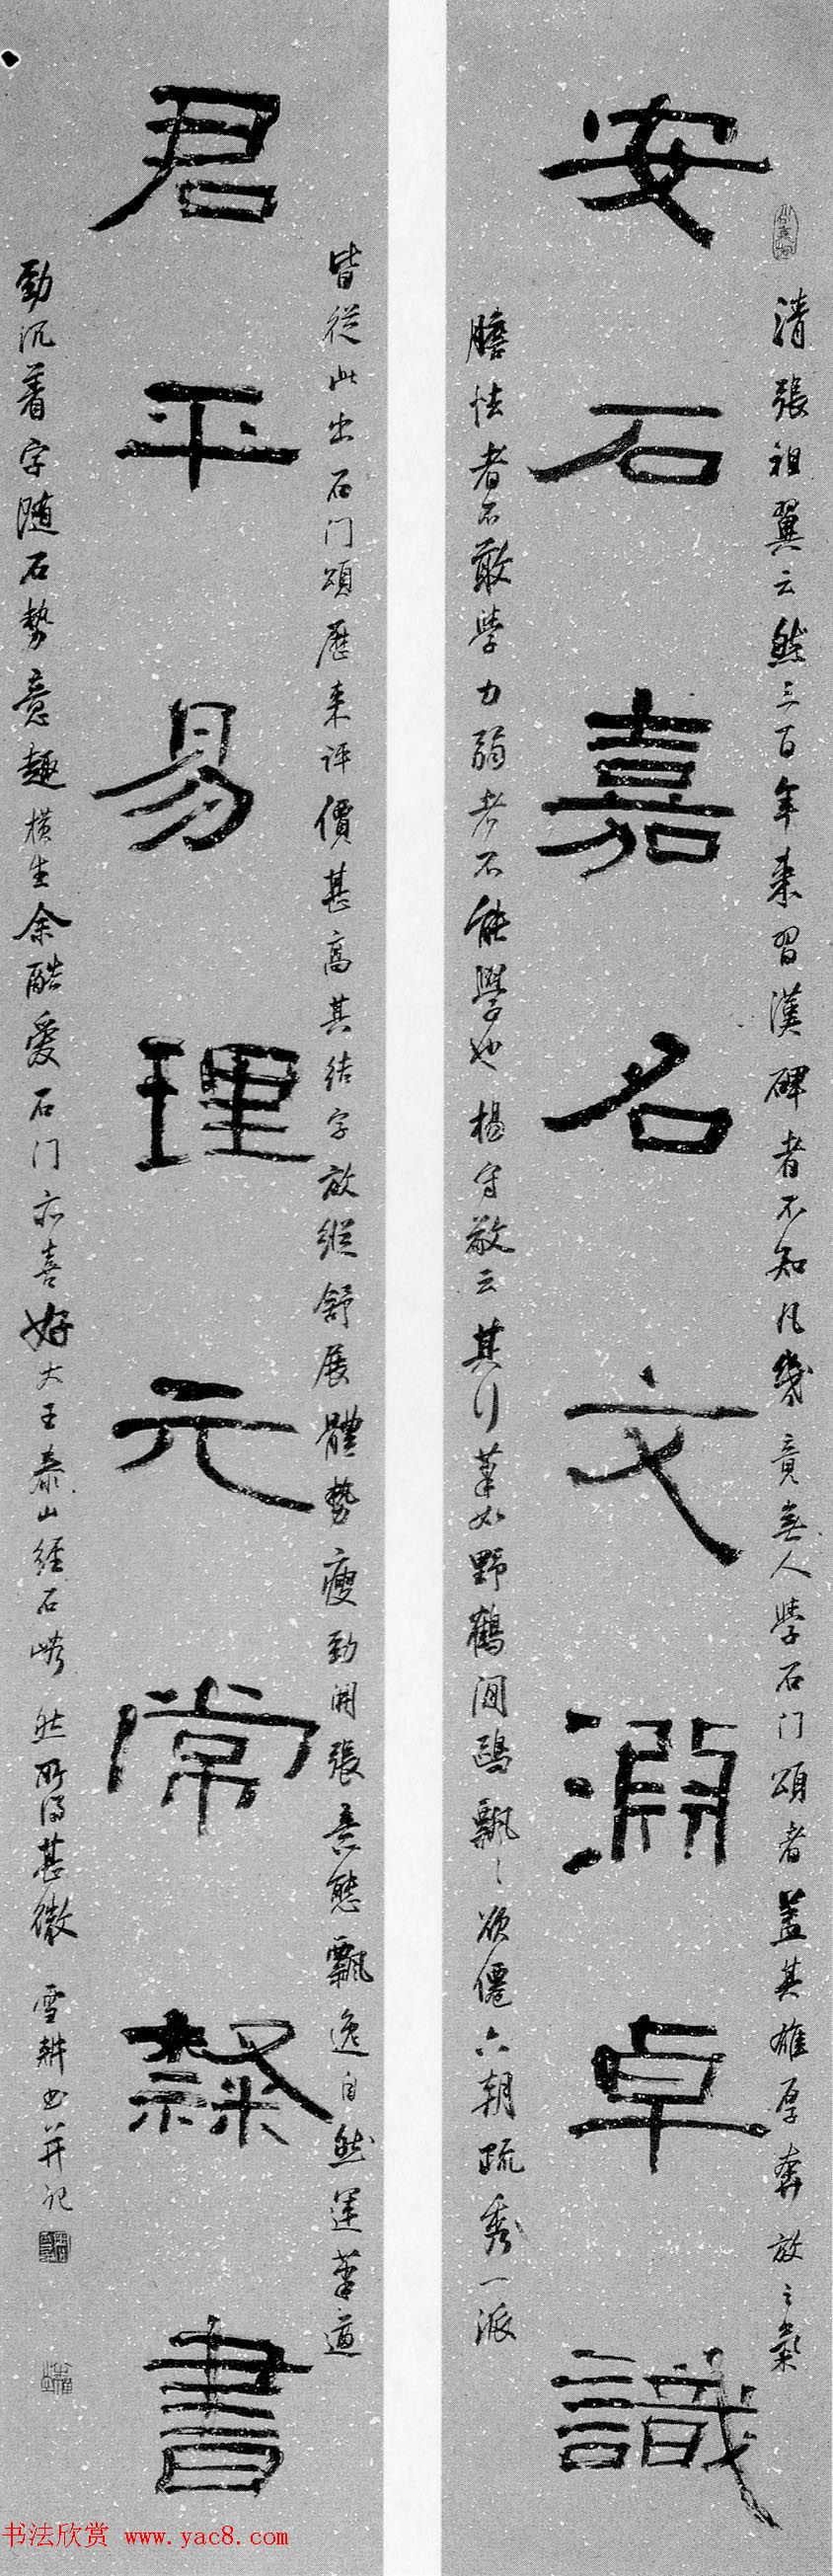 安石嘉名文淵卓識
君平易理元常隸書
清張祖翼云然三百年来習漢碑者不知凡幾竟無人學石门頌者蓋其雄厚奔放之氣
膽怯者不敢學力弱者不能學也楊守敬云其行筆如野鶴閒鷗飄飄欲僊六朝疏秀一派
皆從此出石门頌歷来評價甚高其结字放縱舒展體勢瘦勁開張意態飄逸自然運筆遒
勁沉着字随石勢意趣横生余酷爱石门亦喜好大王泰山經石峪然所得甚微 雪耕书并记
书法欣赏 www.yac8.com